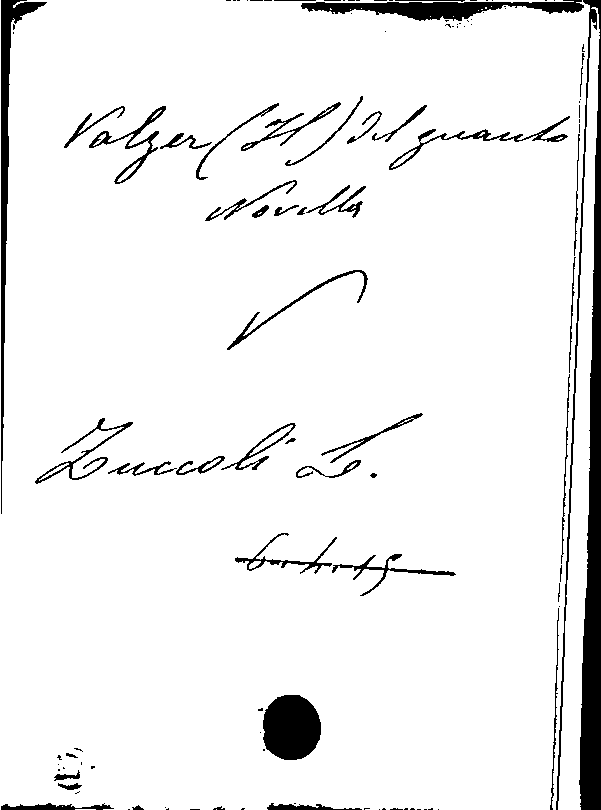 Valzer (Il) del guanto
Novella
V
Zuccoli L.